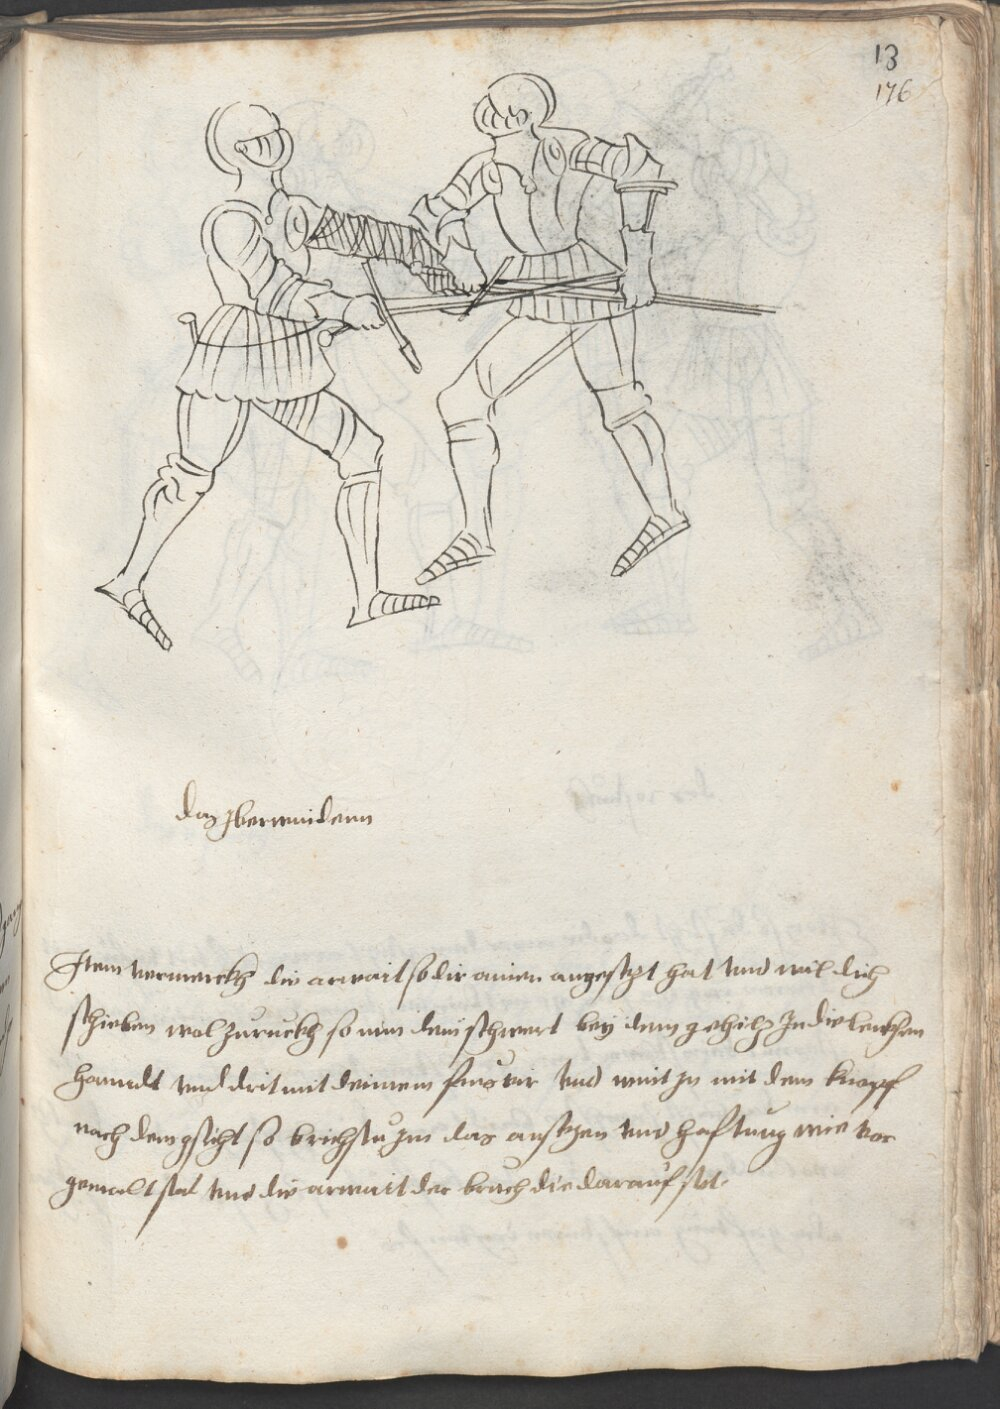 13
176
das Iberwindenn
Item vermerckh die arwait so dir ainer angesetzt hat vnd wil dich
schieben wol zuruckh so nim dein schwert bey dem gehilz In die lenckhen
hanndt vnd drit mit deinem fuos vir vnd wint Im mit dem knopf
nach dem gsicht so brichstu Im das ansetzen vnd haftung wie vor
gemalt stat vnd die arwait der bruch die darauf stet